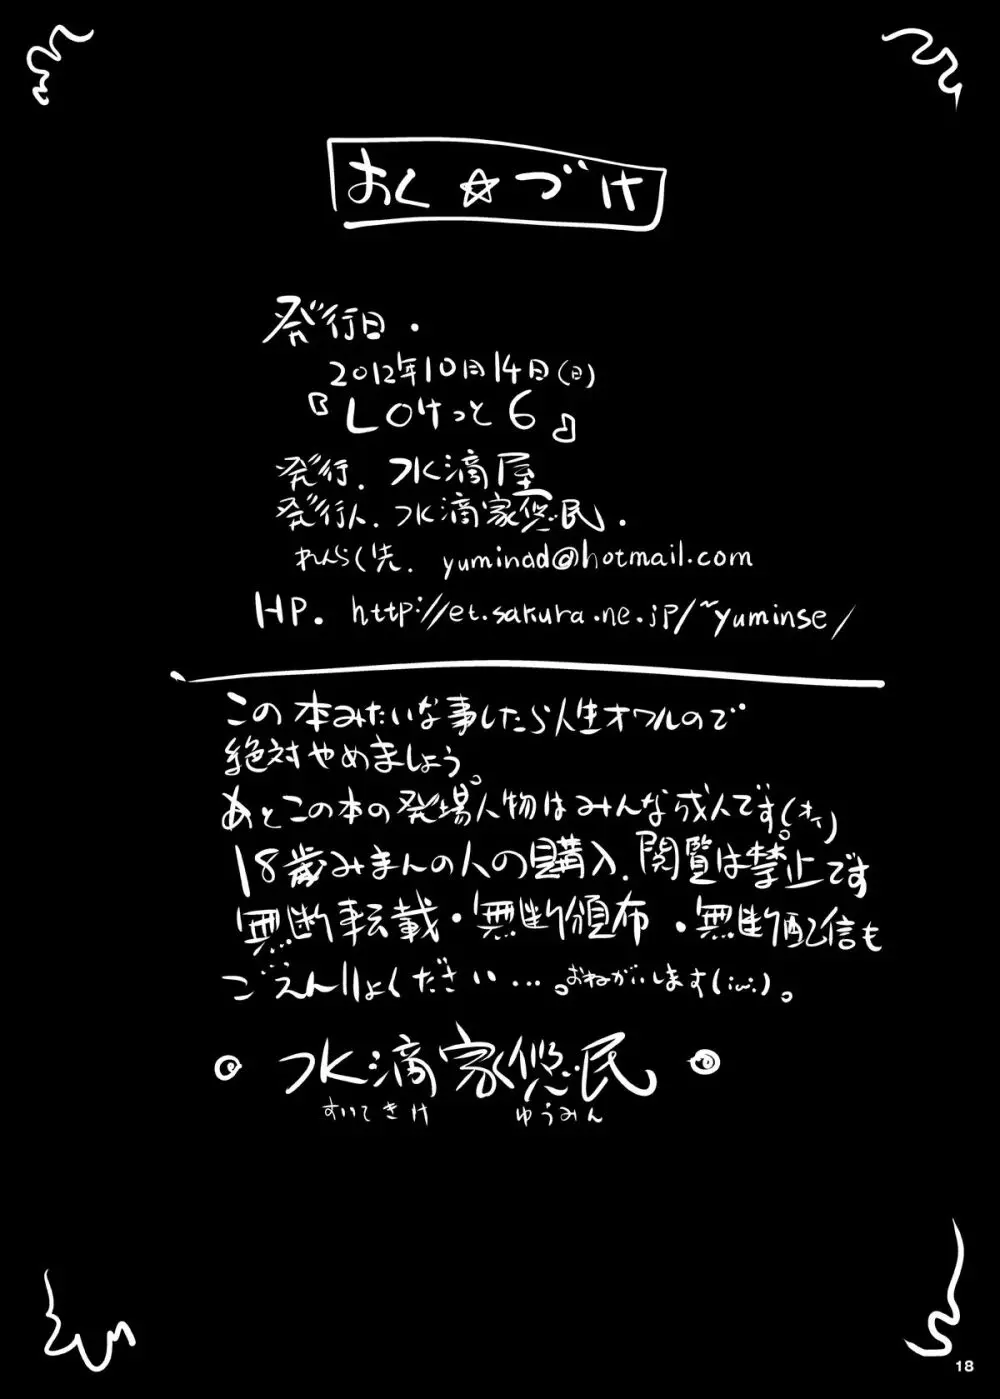 おく☆づけ
発行日.
2012年10月14日(日)
『LOけっと6』
発行. 水滴屋
発行人. 水滴家悠民.
れんらく先. yuminad@hotmail.com
HP. http://et.sakura.ne.jp/~yuminse/
この本みたいな事したら人生オワルので
絶対やめましょう。
あとこの本の発場人物はみんな成人です(オイ)。
18歳みまんの人の購入.閲覧は禁止です
無断転載・無断頒布・無断配信も
ごえんりょください…。おねがいします(;ω;)。
水滴家悠民
すいてきけ ゆうみん
18